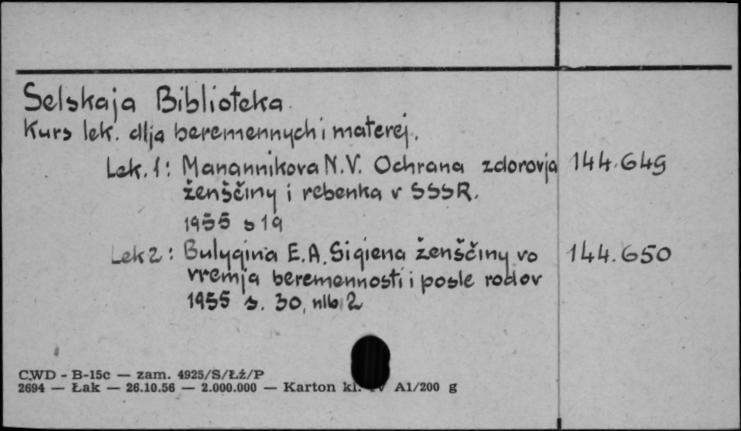 Selskaja Biblioteka.
Kurs lek. dlja beremennych i materej.
Lek. 1: Manannikova N.V. Ochrana zdorovja 144.649
ženščiny i rebenka v SSSR.
1955 s 19
Lek 2: Bulygina E.A. Sigiena ženščiny vo 144.650
vremja beremennosti i posle rodov
1955 s. 30, nlb 2
CWD - B-15c — zam. 4925/S/Łż/P
2694 — Łak — 26.10.56 — 2.000.000 — Karton kl. IV A1/200 g